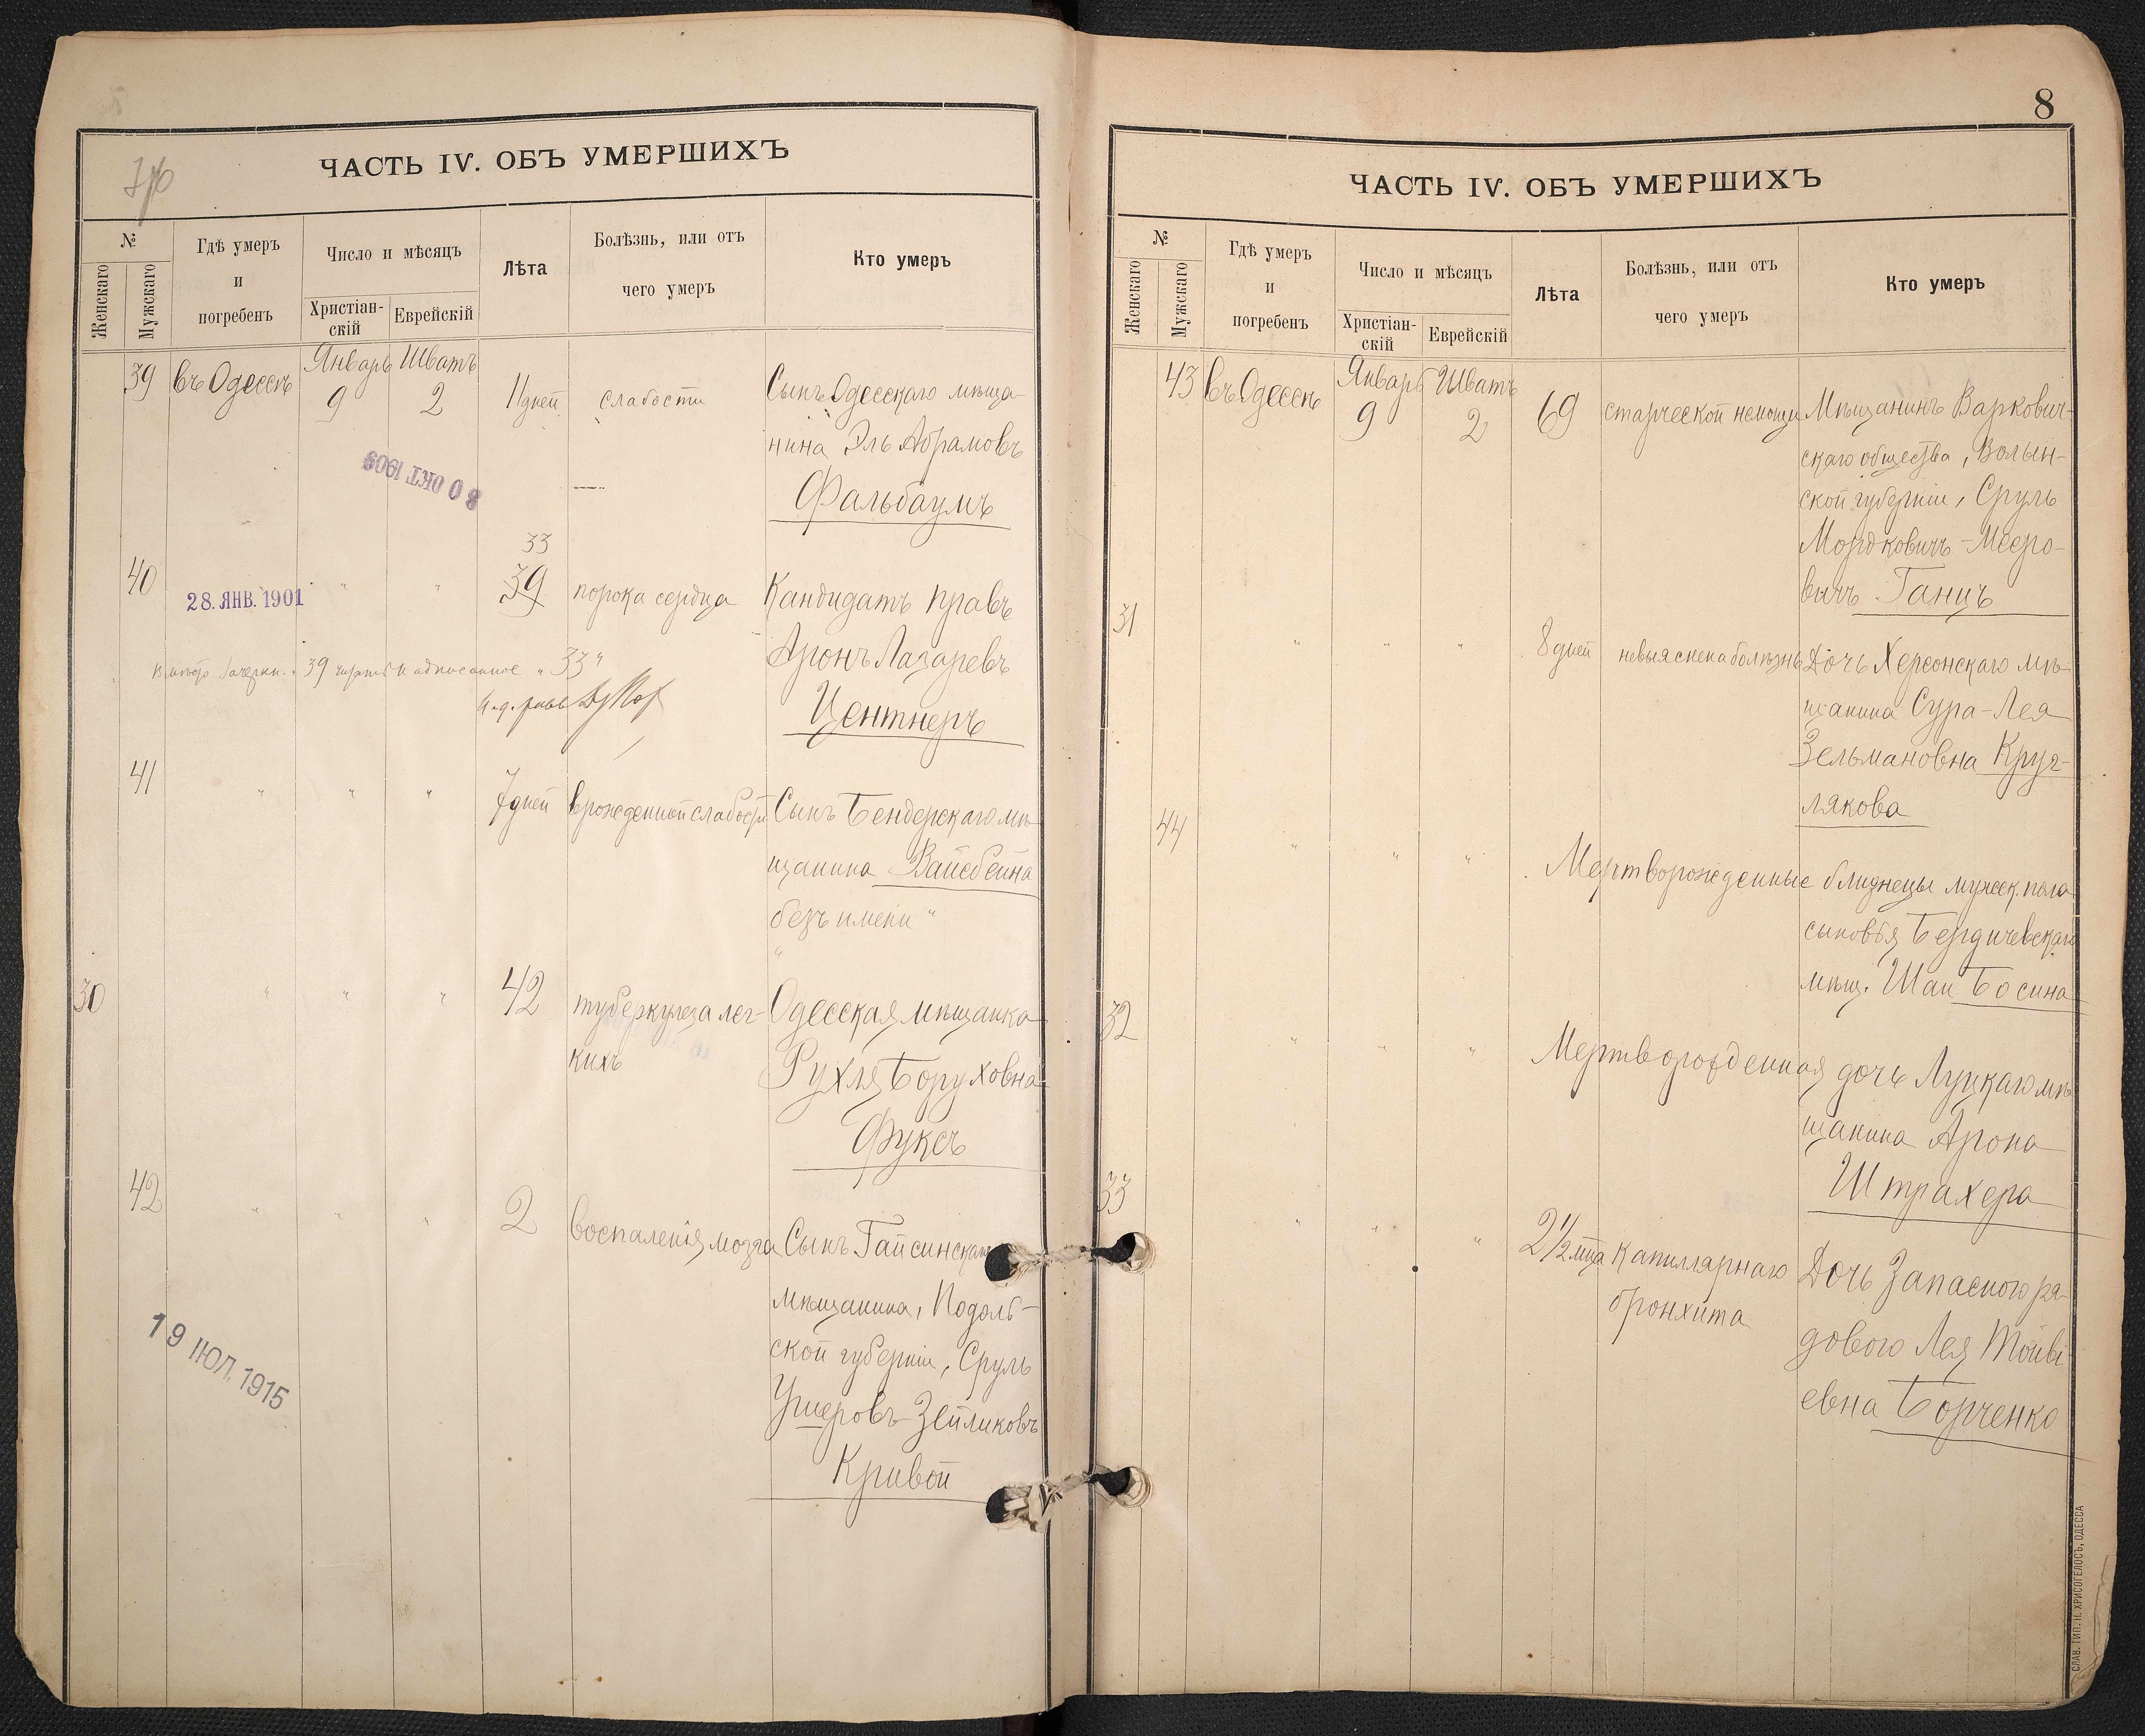 ЧАСТЬ IV. ОБЪ УМЕРШИХЪ
№
Женскаго
Мужскаго
Гдѣ умеръ
и
погребенъ
Число и мѣсяцъ
Христіан-
скій
Еврейскій
Лѣта
Болѣзнь, или отъ
чего умеръ
Кто умеръ
39 въ Одессѣ Январь 9 Шватъ 2 11 дней слабости Сынъ Одесскаго мѣща-
нина Эль Абрамовъ
Фальбаумъ
30 ОКТ 1909
33
40 " " 39 порока сердца Кандидатъ правъ
28. ЯНВ. 1901
Аронъ Лазаревъ
39 надписанное "33"
Центнеръ
41 " " " 7 дней врожденной слабости Сынъ Бендерскаго мѣ-
щанина Вайсбейна
безъ имени "
30 " " " 42 туберкулеза лег- Одесская мѣщанка
кихъ Рухля Боруховна
Фуксъ
42 " " " 2 воспаленія мозга Сынъ Гайсинскаго
мѣщанина, Подоль-
ской губерніи, Сруль
Ушеровъ-Зейликовъ
Кривой
19 ІЮЛ. 1915
8
ЧАСТЬ IV. ОБЪ УМЕРШИХЪ
№
Женскаго
Мужскаго
Гдѣ умеръ
и
погребенъ
Число и мѣсяцъ
Христіан-
скій
Еврейскій
Лѣта
Болѣзнь, или отъ
чего умеръ
Кто умеръ
43 въ Одессѣ Январь 9 Шватъ 2 69 старческой немощи Мѣщанинъ Варкович-
скаго общества, Волын-
ской губерніи, Сруль
Мордковичъ-Мееро-
вичъ Ганцъ
31 " " " 8 дней невыяснена болѣзнь Дочь Херсонскаго мѣ-
щанина Сура-Лея
Зельмановна Круг-
лякова
44 " " " Мертворожденные близнецы мужск. пола
сыновья Бердичевскаго
мѣщ. Шаи Босина
32 " " " Мертворожденная дочь Луцкаго мѣ-
щанина Арона
Штрахера
33 " " " 2 1/2 мца капиллярнаго Дочь Запасного ря-
бронхита дового Лея Тойві-
евна Борченко
СЛАВ. ТИП. Н. ХРИСОГЕЛОСЪ, ОДЕССА